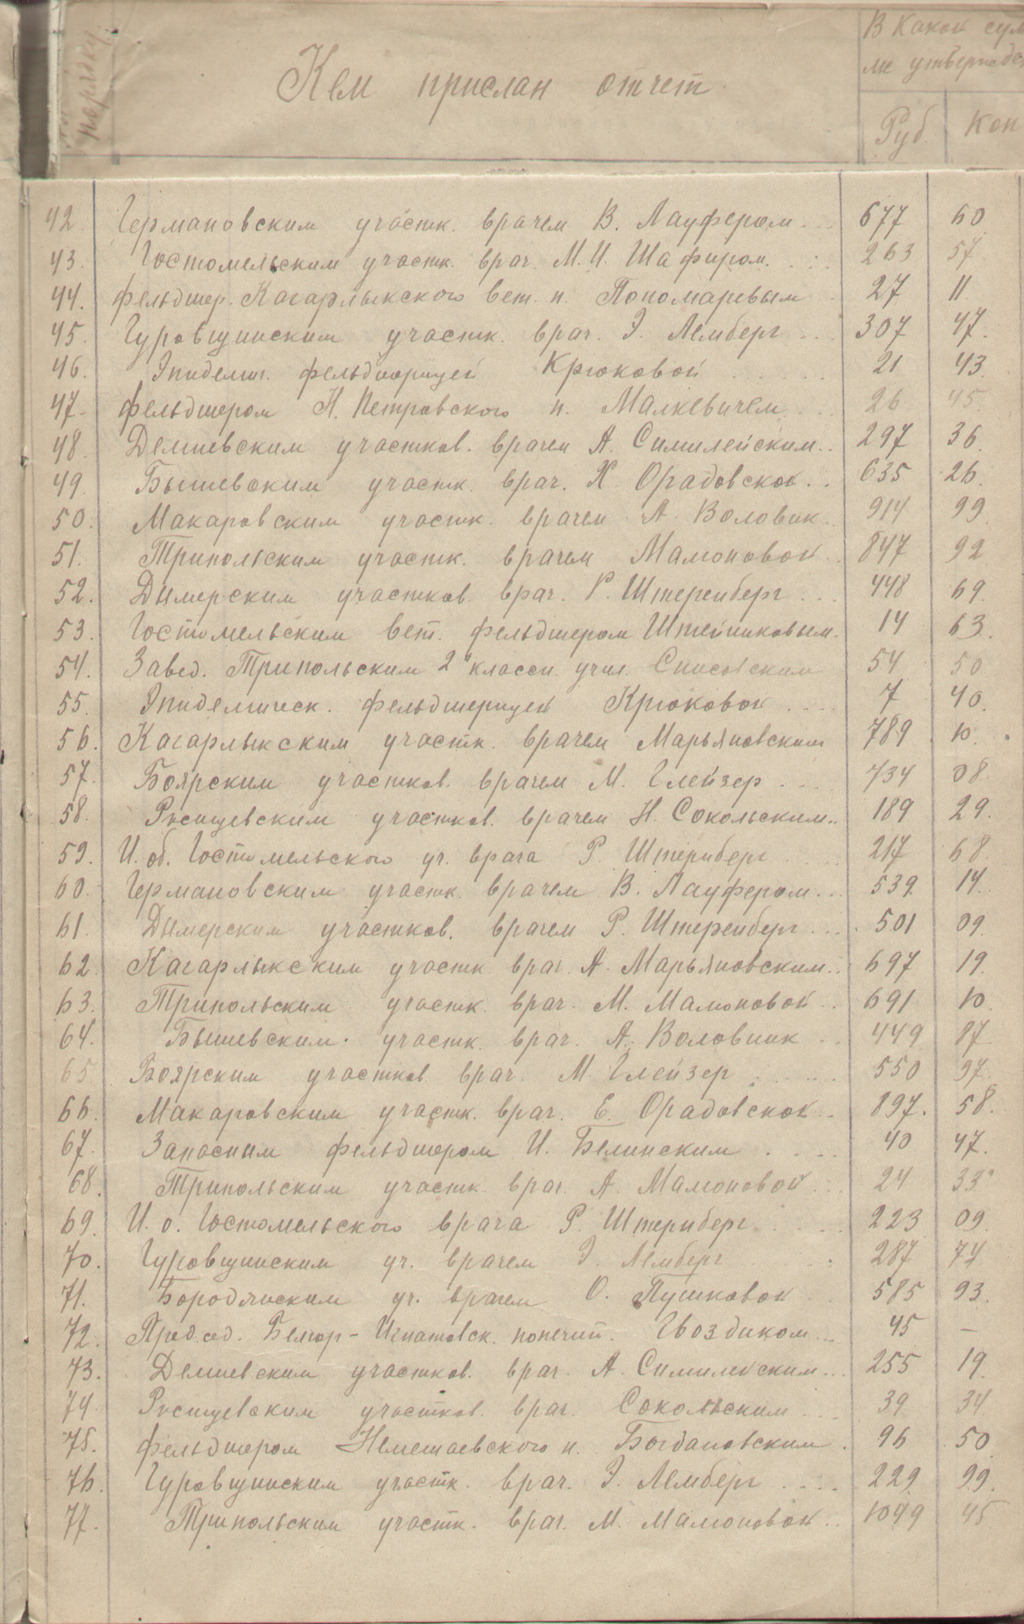 порядку
Кем прислан отчет
В какой сум
ме утвержде
Руб. Коп
42. Германовским участк. врачем В. Лауфером... 677 60
43. Гостомельским участк. врач. М. И. Шафиром. 263 57
44. Фельдшер. Кагарлыкского вет. п. Пономаревым 27 11
45. Гуровщинским участк. врач. Э. Лемберг... 307 47.
46. Эпидемич. фельдшерицей Крюковой.... 21 43
47. Фельдшером Н. Петровского п. Малкевичем 26 45
48. Демиевским участков. врачем А. Симилейским.. 297 36
49. Бышевским участк. врач. Х. Орадовской.. 635 26.
50. Макаровским участк. врачем А. Воловик. 914 99
51. Трипольским участк. врачем Мамоновой. 847 92
52. Дымерским участков. врач. Р. Штеренберг... 448 69.
53. Гостомельским вет. фельдшером Штейниковым. 14 63.
54. Завед. Трипольским 2 класси. учил. 54 50
55. Эпидемическ. фельдшерицей Крюковой.... 7 40.
56. Кагарлыкским участк. врачем Марьяновским 789 10.
57. Боярским участков. врачем М. Глейзер.... 734 08
58. Рясищевским участков. врачем Н. Сокольским.. 189 29.
59. И. об. Гостомельского уч. врача Р. Штернберг 217 68
60. Германовским участк. врачем В. Лауфером... 539 14.
61. Дымерским участков. врачем Р. Штеренберг... 501 09.
62. Кагарлыкским участк врач. А. Марьяновским.. 697 19.
63. Трипольским участк. врач. М. Мамоновой.. 691 10
64. Бышевским. участк. врач. А. Воловник.. 449 87
65 Боярским участков врач. М. Глейзер...... 550 97
66. Макаровским участк. врач. Е. Орадовской.. 897. 58.
67. Запасным фельдшером И. Белинским.... 40 47.
68. Трипольским участк. врач. А. Мамоновой 24 33
69. И. о. Гостомельского врача Р. Штернберг. 223 09.
70. Гуровщинским уч. врачем Э. Лемберг 287 74
71. Бородянским уч. врачем О. Пушновой 585 93.
72. Пред. сд. Белгор-Игнатовск. попечит. Гвоздиком... 45 —
73. Демиевским участков. врач. А. Симилейским... 255 19.
74. Рясищевским участков. врач. Сокольским... 39 34
75. Фельдшером Немешаевского п. Богдановским. 96 50
76. Гуровщинским участк. врач. Э. Лемберг.... 229 99.
77. Трипольским участк. врач. М. Мамоновой.. 1049 45